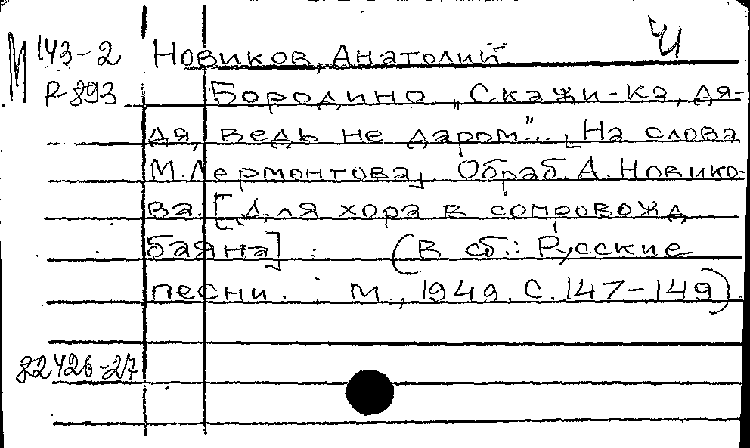 Ч
М 143-2 Новиков, Анатолий
Р-893 Бородино „Скажи-ка, дя-
дя, ведь не даром"... [На слова
М. Лермонтова] Обраб. А. Новико-
ва. [Для хора в сопровожд.
баяна]. (В сб.: Русские
песни. М., 1949. С. 147-149).
82426-27